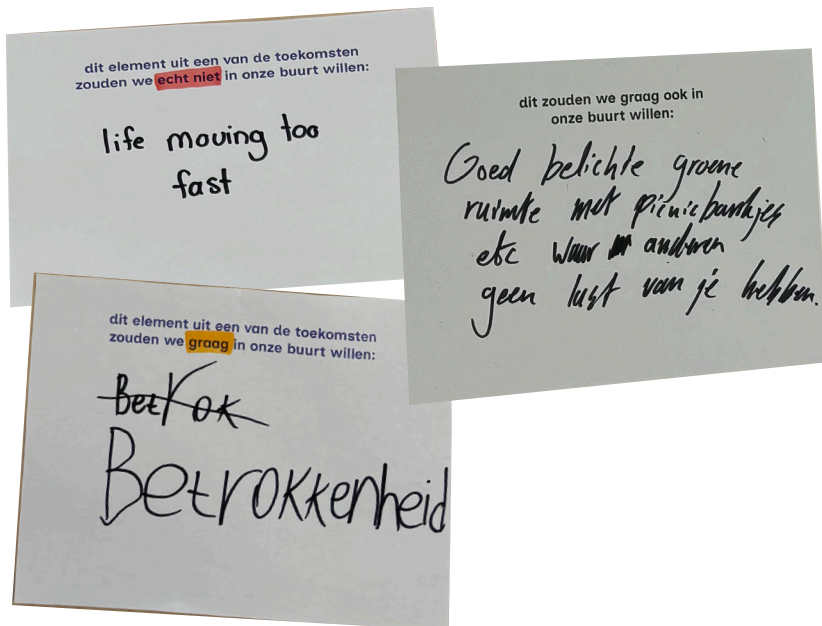 dit element uit een van de toekomsten
zouden we echt niet in onze buurt willen:
life moving too
fast
dit zouden we graag ook in
onze buurt willen:
Goed belichte groene
ruimte met picnicbankjes
etc waar anderen
geen last van je hebben.
dit element uit een van de toekomsten
zouden we graag in onze buurt willen:
Betrok
Betrokkenheid